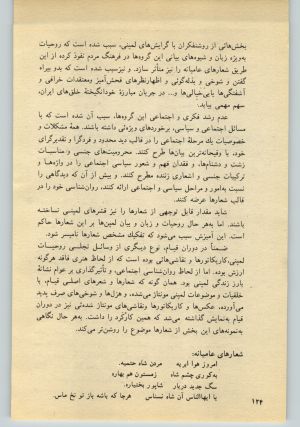 بخش‌هائی از روشنفکران با گرایش‌های لمپنی، سبب شده است که روحیات
به‌ویژه زبان و شیوه‌های بیانی این گروه‌ها در فرهنگ مردم نفوذ کرده از این
طریق شعارهای عامیانه را نیز متأثر سازد. و نیز سبب شده است که بدو بیراه
گفتن و شوخی و بذله‌گوئی و اظهارنظرهای فحش‌آمیز ومعتقدات خرافی و
آشفتگی‌ها بابی‌خیالی‌ها و... در جریان مبارزهٔ خودانگیختهٔ خلق‌های ایران،
سهم مهمی بیابد.
عدم رشد فکری و اجتماعی این گروه‌ها، سبب آن شده است که با
مسائل اجتماعی و سیاسی، برخوردهای ویژه‌ئی داشته باشند. همهٔ مشکلات و
خصوصیات یك مرحلهٔ اجتماعی را در قالب دید محدود و فردگرا و تقدیرگرای
خود، با وقیحانه‌ترین بیان‌ها طرح کنند. محرومیت‌های جنسی و مناسبات
زشت و دشنام‌ها، و فقدان فهم و شعور سیاسی اجتماعی را در واژه‌ها و
ترکیبات جنسی و اشعاری زننده مطرح کنند. و بیش از آن که دیدگاهی را
نسبت به‌امور و مراحل سیاسی و اجتماعی ارائه کنند، روان‌شناسی خود را در
قالب شعارها عرضه کنند.
شاید مقدار قابل توجهی از شعارها را نیز قشرهای لمپنی نساخته
باشند. اما به‌هر حال روحیات و زبان و بیان لمپن‌ها بر این شعارها حاکم
است. این آمیزش سبب می‌شود که تفکیك مشخص شعارها نامیسر شود.
ضمناً در دوران قیام، نوع دیگری از وسائل تجلی روحیات
لمپنی، کاریکاتورها و نقاشی‌هائی بوده است که از لحاظ هنری فاقد هرگونه
ارزش بوده. اما از لحاظ روان‌شناسی اجتماعی، و تأثیرگذاری بر عوام نشانهٔ
بارز زندگی لمپنی بود. همان گونه که شعارها و شعرهای اصلی قیام، با
خلقیات و موضوعات لمپنی مونتاژ می‌شدند، و هزل‌ها و شوخی‌های صرف پدید
می‌آوردند، عکس‌ها و کاریکاتورها ونقاشی‌های مونتاژ شده‌ئی نیز در دوران
قیام به‌نمایش گذاشته می‌شد که همین کارکرد را داشت. به‌هر حال نگاهی
به‌نمونه‌های این بخش از شعارها موضوع را روشن‌تر می‌کند.
شعارهای عامیانه:
امروز هوا ابریه مردن شاه حتمیه.
به‌کوری چشم شاه زمستون هم بهاره
سگ جدید دربار شاپور بختیاره.
یا ایهاالناس آن شاه نسناس هرجا که باشه باز تو نخ ماس.
۱۲۴